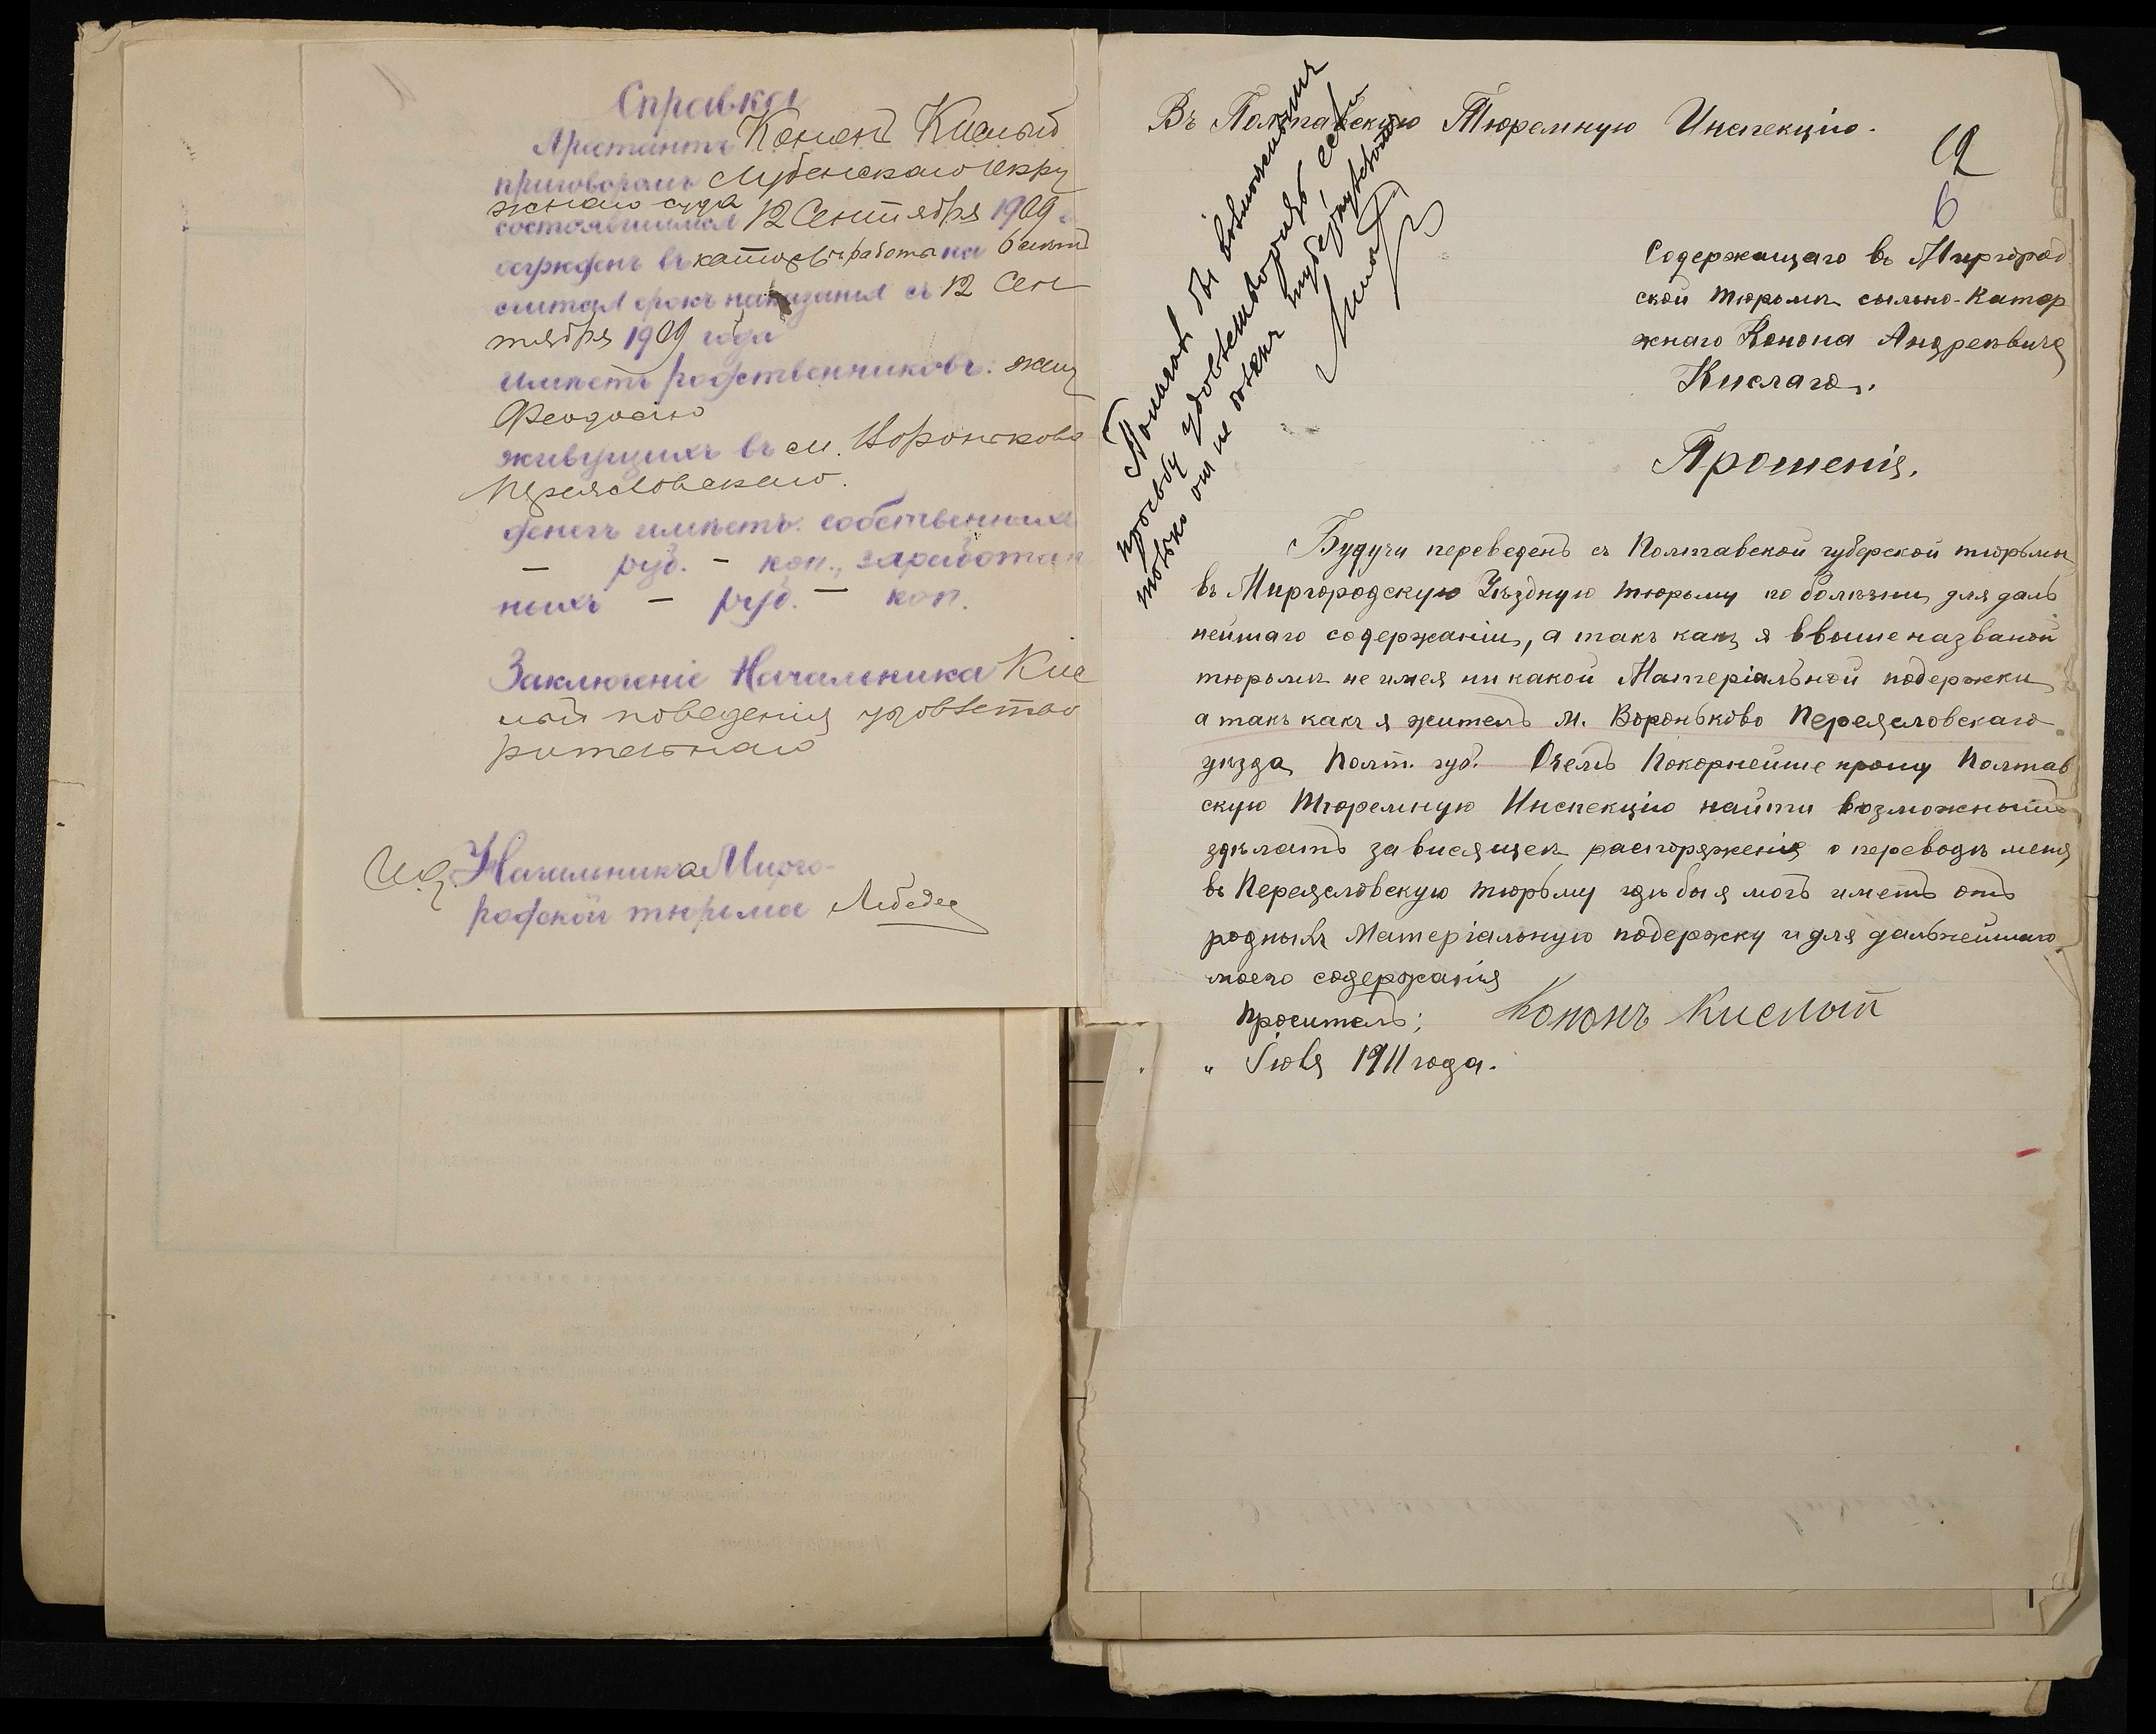 Справка
Арестантъ Кононъ Кислый
приговоромъ Лубенскаго Окру
жнаго суда
состоявшимся 12 Сентября 1909 г.
осужденъ въ каторжн. работы на 6 лѣтъ
считая срокъ наказанія съ 12 Сен
тября 1909 года
имѣетъ родственниковъ: жену
Феодосію
живущихъ въ м. Воронькова
Переясловскаго.
денегъ имѣетъ: собственныхъ
— руб. — коп., заработан
ныхъ — руб. — коп.
Заключеніе Начальника Кис
лый поведенія удовлетво
рительнаго
И.д. Начальника Мирго-
родской тюрьмы Лебедев
Въ Полтавскую Тюремную Инспекцію.
19
6
Содержащаго въ Миргород
ской тюрьмѣ сыльно-Катор
жнаго Конона Андреевича
Кислаго.
Прошенія.
Полагалъ бы возможнымъ
просьбу удовлетворить, если
только онъ не боленъ туберкулезомъ
Будучи переведенъ съ Полтавской губерской тюрьмы
въ Миргородскую Уѣздную тюрьму по болѣзни, для даль
нейшаго содержаніи, а такъ какъ я ввыше названой
тюрьмѣ не имея ни какой Матеріяльной подержки
а такъ какъ я житель м. Вороньково Переясловскаго
уѣзда Полт. губ. Очемъ Покорнейше прошу Полтав
скую Тюремную Инспекцію найти возможнымъ
здѣлать зависящее распоряженія о переводѣ меня
въ Переясловскую тюрьму где бы я могъ иметь отъ
родныхъ Матеріальную подержку и для дальнейшаго
моего содержанія
Проситель: Кононъ Кислый
" Іюля 1911 года.